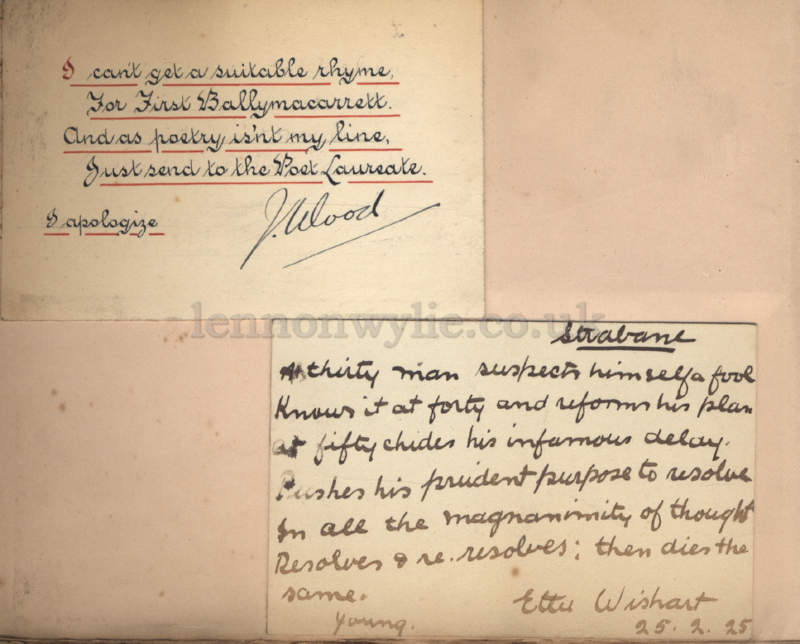 I can't get a suitable rhyme,
For First Ballymacarrett.
And as poetry is'nt my line,
Just send to the Poet Laureate.
I apologize
J. Wood
lennonwylie.co.uk
Strabane
At thirty man suspects himself a fool
Knows it at forty and reforms his plan
at fifty chides his infamous delay.
Pushes his prudent purpose to resolve
In all the magnanimity of thought
Resolves & re.resolves; then dies the
same.
Young.
Wishart
25.2.25